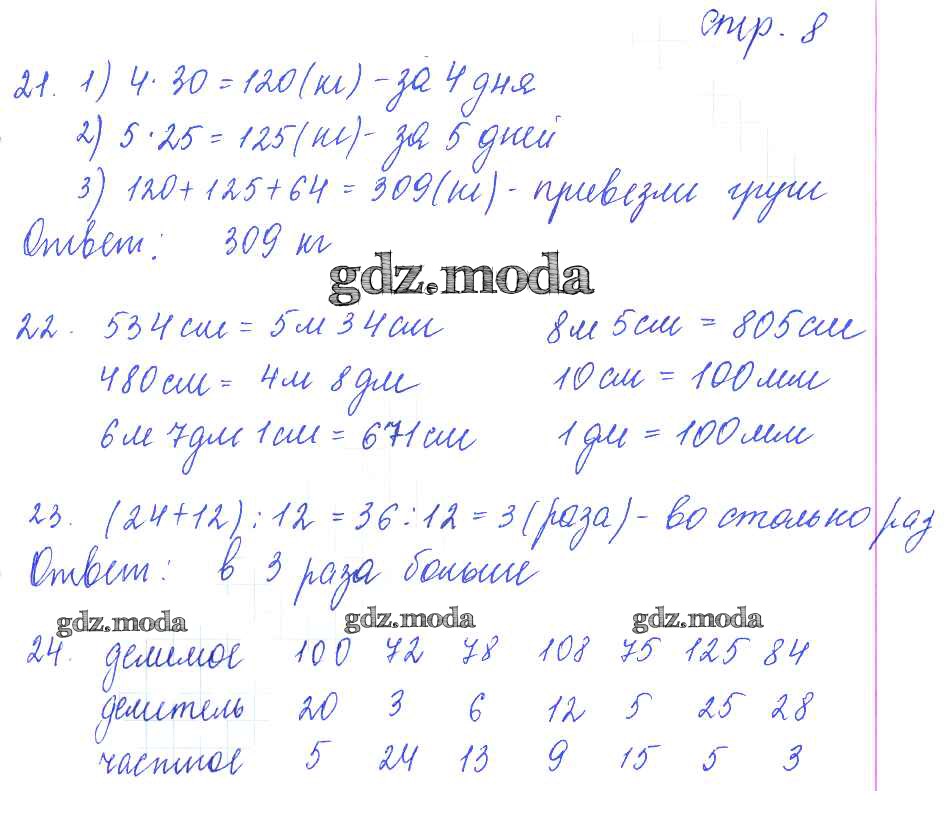 стр. 8
21. 1) 4 · 30 = 120 (кг) - за 4 дня
2) 5 · 25 = 125 (кг) - за 5 дней
3) 120 + 125 + 64 = 309 (кг) - привезли груш
Ответ: 309 кг
gdz.moda
22. 534 см = 5 м 34 см 8 м 5 см = 805 см
480 см = 4 м 8 дм 10 см = 100 мм
6 м 7 дм 1 см = 671 см 1 дм = 100 мм
23. (24 + 12) : 12 = 36 : 12 = 3 (раза) - во столько раз
Ответ: в 3 раза больше
gdz.moda gdz.moda gdz.moda
24. делимое 100 72 78 108 75 125 84
делитель 20 3 6 12 5 25 28
частное 5 24 13 9 15 5 3